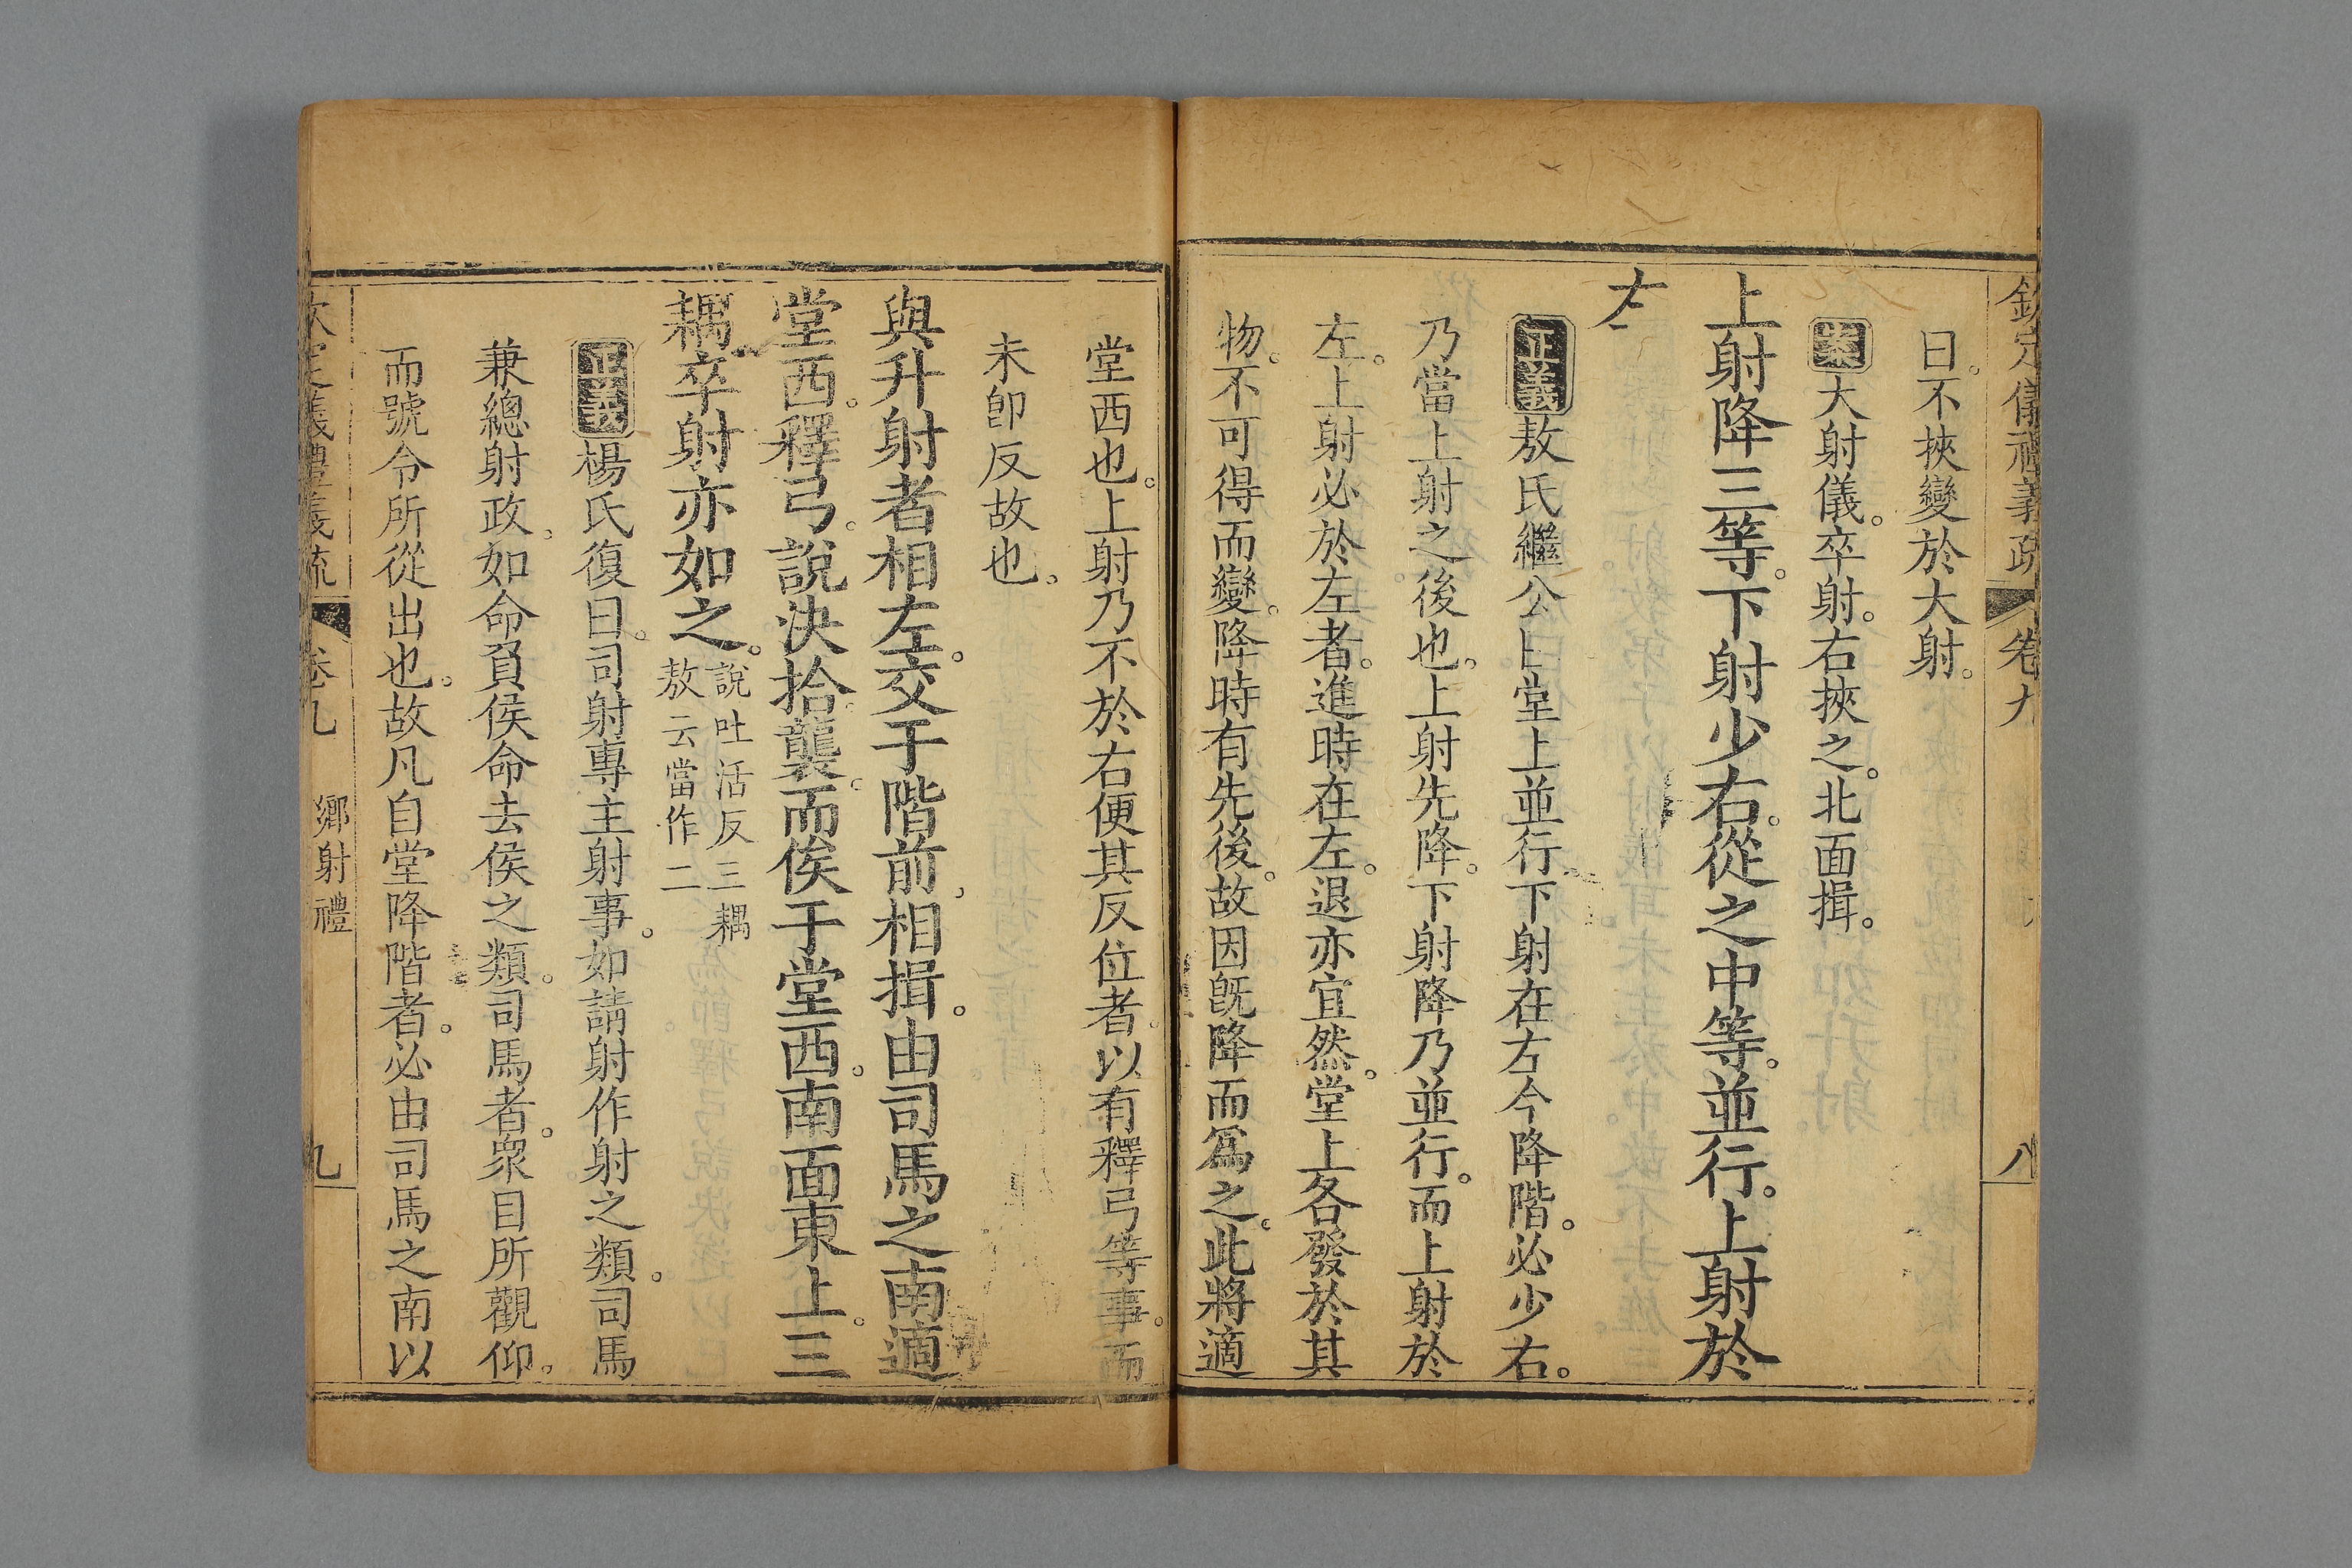 欽定儀禮義疏 卷九 八
曰。不挾變於大射。
案大射儀。卒射。右挾之。北面揖。
上射降三等。下射少右。從之中等。並行。上射於
左
正義敖氏繼公曰堂上並行。下射在右今降階。必少右。
乃當上射之後也。上射先降。下射降乃並行。而上射於
左。上射必於左者。進時在左。退亦宜然。堂上各發於其
物。不可得而變。降時有先後。故因旣降而爲之。此將適
堂西也。上射乃不於右便其反位者。以有釋弓等事。而
未卽反故也。
與升射者相左。交于階前。相揖。由司馬之南適
堂西。釋弓。說決拾。襲。而俟于堂西。南面東上。三
耦卒射亦如之。說吐活反三耦
敖云當作二
正義楊氏復曰。司射專主射事。如請射作射之類。司馬
兼總射政。如命負侯命去侯之類。司馬者。衆目所觀仰。
而號令所從出也。故凡自堂降階者。必由司馬之南以
欽定儀禮義疏 卷九 鄉射禮 九